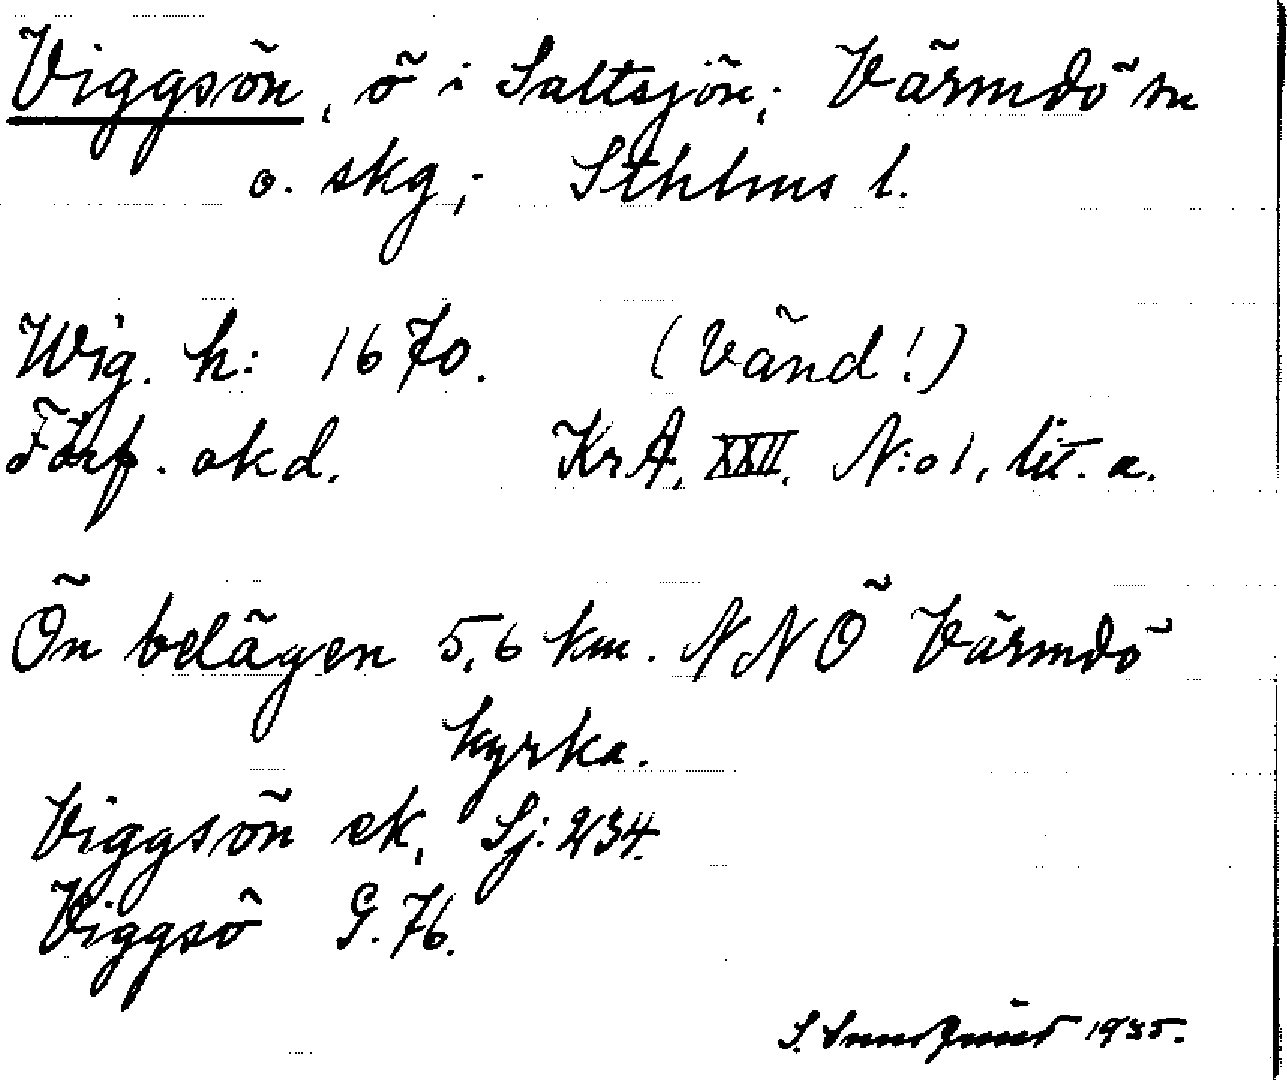 Viggsön, ö i Saltsjön; Värmdö sn
o. skg; Sthlms l.
Wig. h: 1670. (Vänd!)
Förf. okd. KrA, XXII. N:o 1, lit. a.
Ön belägen 5,6 km. NNÖ Värmdö
kyrka.
Viggsön ek, Sj: 234.
Viggsö G. 76.
S. Sundqvist 1935.